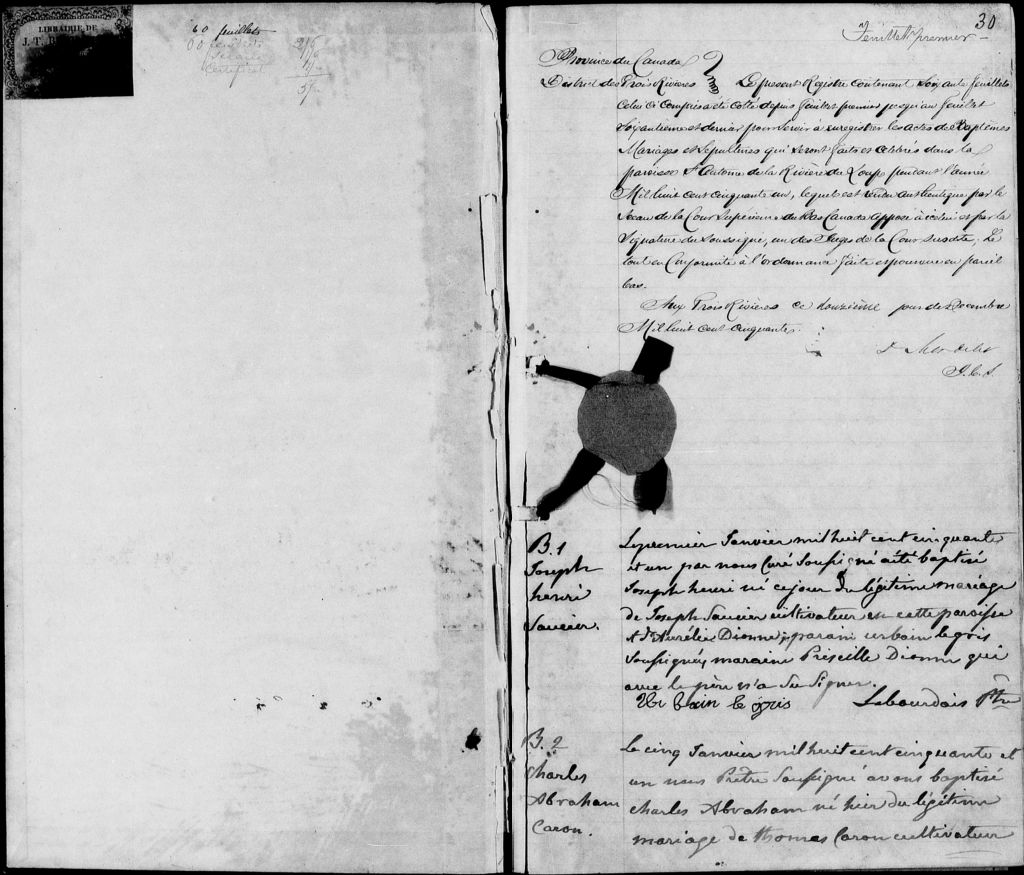 LIBRAIRIE DE
J. T.
60 feuillets
30
Feuillett premier
Province du Canada
District des Trois Rivières Le present Registre contenant Soixante feuillets
Celui Ci Compris a été Cotté depuis feuillet premier jusqu'au feuillet
Soixantieme et dernier pour servir à enregistrer les actes de Baptêmes
Mariages et Sepultures qui seront faits et célébrés dans la
paroisse St Antoine de la Rivière du Loup pendant l'année
Mil huit cent cinquante un, lequel est rendu authentique par le
Sceau de la Cour Supérieure du Bas Canada apposé à icelui et par la
Signature du Soussigné, un des Juges de la Cour Susdite, Le
tout en Conformité à l'ordonnance faite et pourvue en pareil
cas.
Aux Trois Rivières ce douzième jour de Decembre
Mil huit cent cinquante.
J. C. S.
B. 1
Joseph
henri
Saucier.
Le premier Janvier mil huit cent cinquante
et un par nous Curé Soussigné a été baptisé
Joseph henri né ce jour du légitime mariage
de Joseph Saucier cultivateur en cette paroisse
& d'Aurélie Dionne; parain urbain le gris
Soussigné, maraine Priscille Dionne qui
avec le père n'a Su Signer.
Ur bain le gris Lebourdais Ptre
B. 2
Charles
Abraham
Caron.
Le cinq Janvier mil huit cent cinquante et
un nous Prêtre Soussigné avons baptisé
Charles Abraham né hier du légitime
mariage de Thomas Caron cultivateur